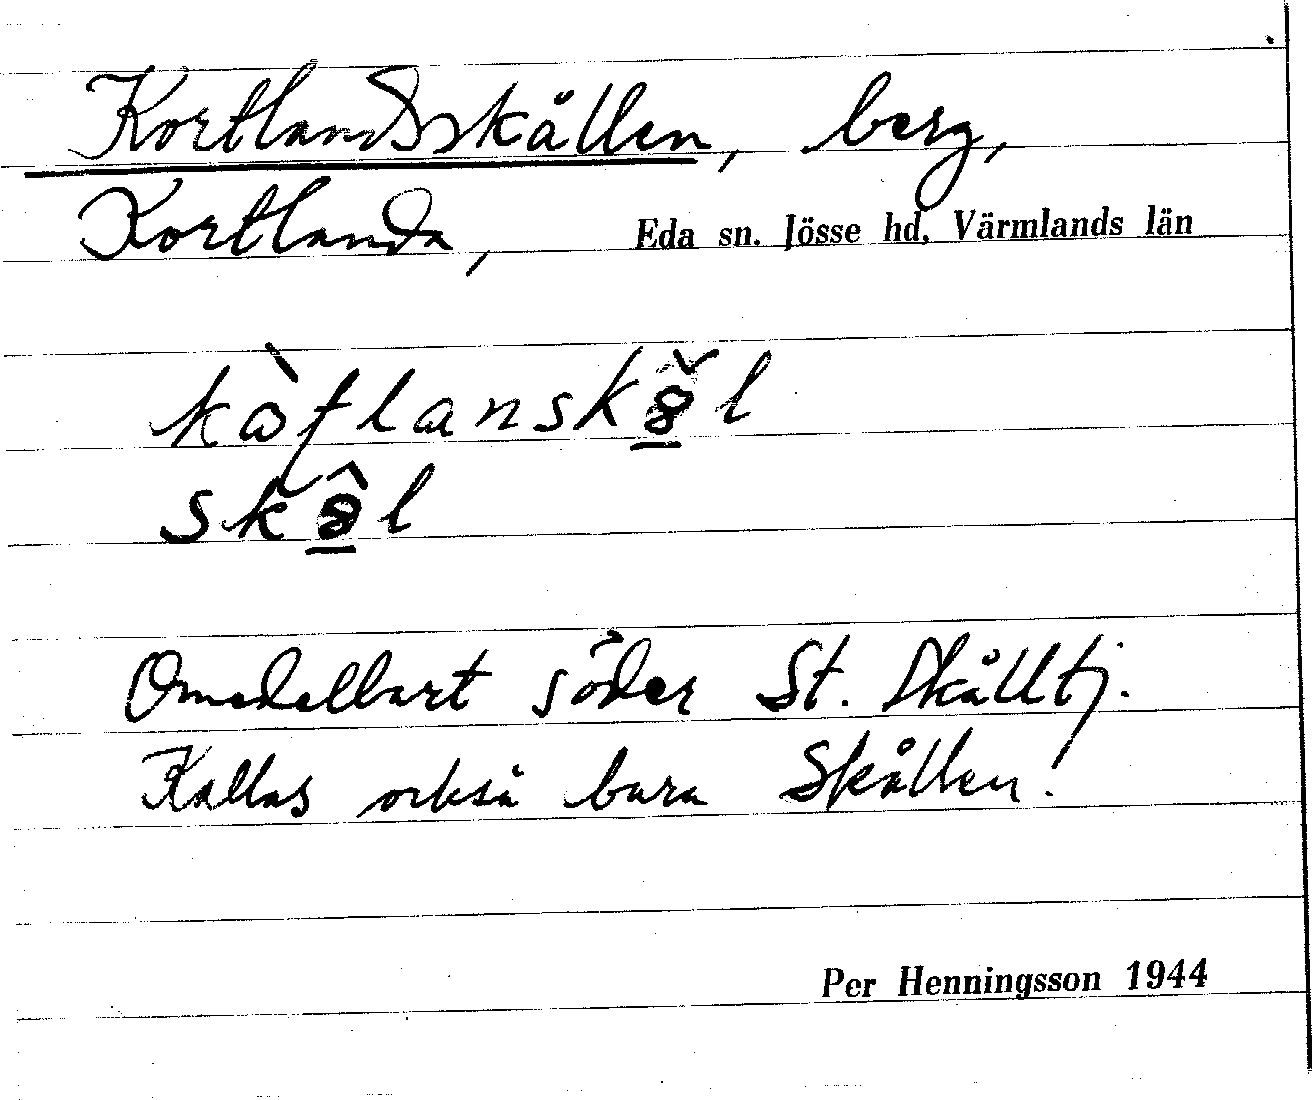 Kortlandsskållen, berg,
Kortlanda, Eda sn. Jösse hd, Värmlands län
Omedelbart söder St. Skålltj.
Kallas också bara Skållen.
Per Henningsson 1944